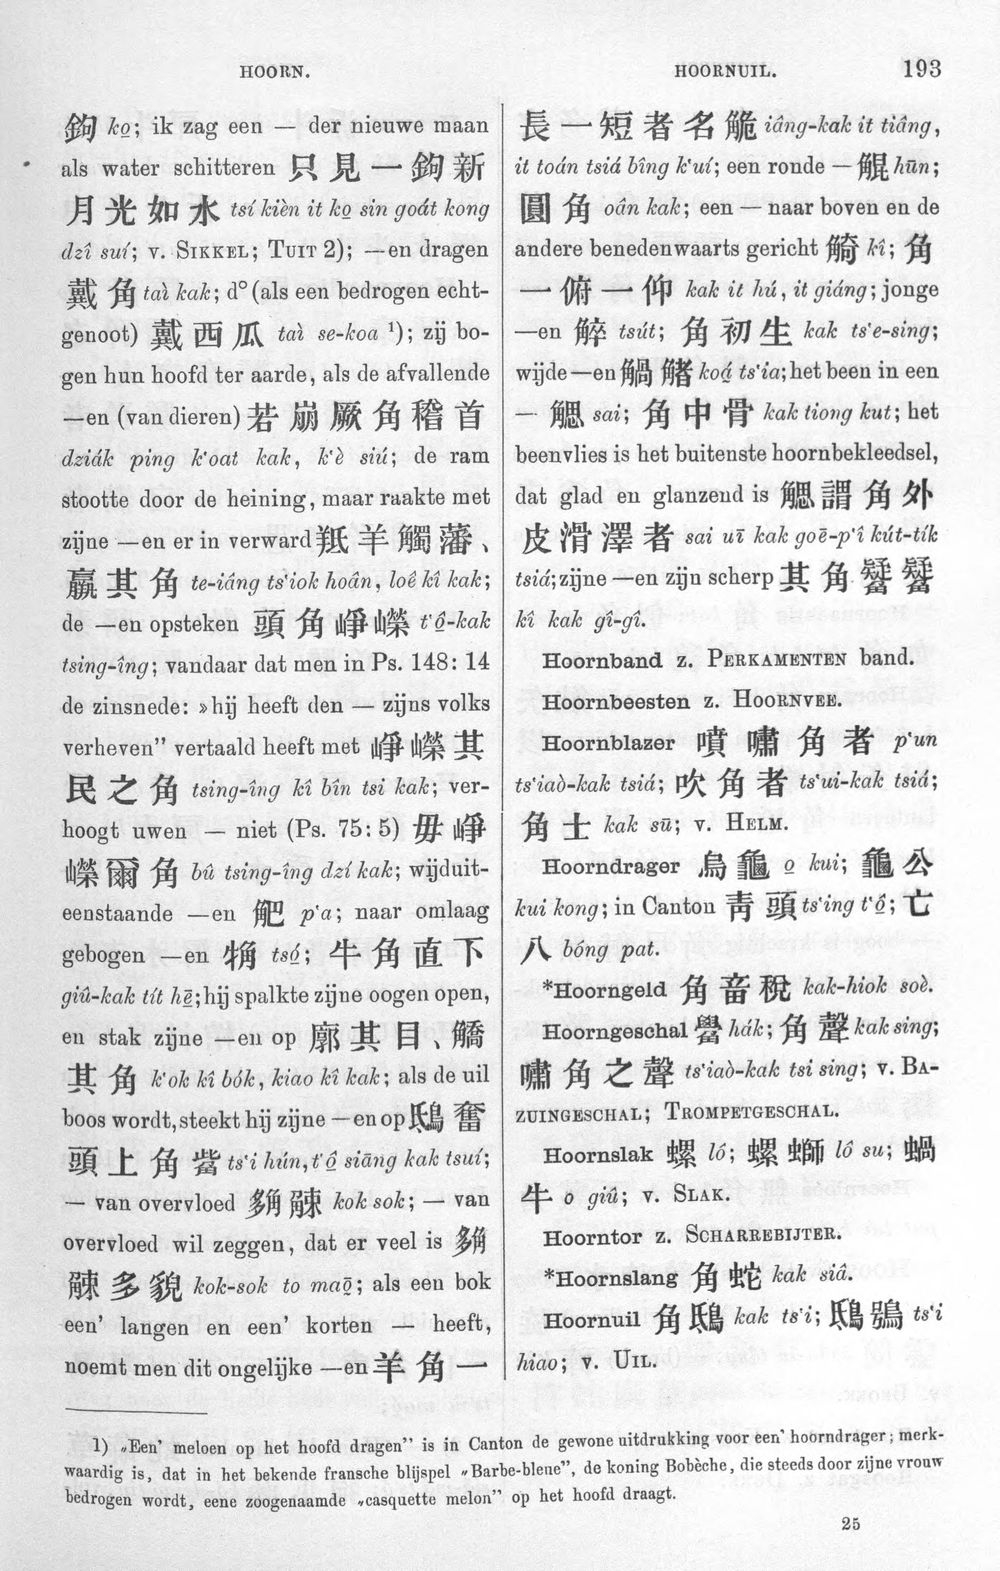 HOORN.
HOORNUIL.
193
鉤 ko̱; ik zag een — der nieuwe maan
als water schitteren 只見一鉤新
月光如水 tsí kièn it ko̱ sin goát kong
dzî suí; v. SIKKEL; TUIT 2); —en dragen
戴角 taì kak; d° (als een bedrogen echt-
genoot) 戴西瓜 taì se-koa ¹); zij bo-
gen hun hoofd ter aarde, als de afvallende
—en (van dieren) 若崩厥角稽首
dziák ping k'oat kak, k'è siú; de ram
stootte door de heining, maar raakte met
zijne —en er in verward 羝羊觸藩、
羸其角 te-iáng ts'iok hoân, loê kî kak;
de —en opsteken 頭角崢嶸 t'ō̱-kak
tsing-îng; vandaar dat men in Ps. 148: 14
de zinsnede: »hij heeft den — zijns volks
verheven" vertaald heeft met 崢嶸其
民之角 tsing-îng kî bîn tsi kak; ver-
hoogt uwen — niet (Ps. 75: 5) 毋崢
嶸爾角 bû tsing-îng dzí kak; wijduit-
eenstaande —en 䶕 p'a; naar omlaag
gebogen —en 觕 tsó̱; 牛角直下
giû-kak tít hē̱; hij spalkte zijne oogen open,
en stak zijne —en op 廓其目、觿
其角 k'ok kî bók, kiao kî kak; als de uil
boos wordt, steekt hij zijne —en op 鴟奮
頭上角觜 ts'i hún, t'ō̱ siāng kak tsuí;
— van overvloed kok sok; — van
overvloed wil zeggen, dat er veel is
多貌 kok-sok to maō̱; als een bok
een' langen en een' korten — heeft,
noemt men dit ongelijke —en 羊角一
長一短者名觤 iâng-kak it tiâng,
it toán tsiá bîng k'uí; een ronde — 䚠 hūn;
圓角 oân kak; een — naar boven en de
andere benedenwaarts gericht 觭 kî; 角
一俯一仰 kak it hú, it giáng; jonge
—en tsút; 角初生 kak ts'e-sing;
wijde —en koá̱ ts'ia; het been in een
— 䚡 sai; 角中骨 kak tiong kut; het
beenvlies is het buitenste hoornbekleedsel,
dat glad en glanzend is 䚡謂角外
皮滑澤者 sai uī kak goē-p'î kút-tík
tsiá; zijne —en zijn scherp 其角觺觺
kî kak gî-gî.
Hoornband z. PERKAMENTEN band.
Hoornbeesten z. HOORNVEE.
Hoornblazer 噴嘯角者 p'un
ts'iaò-kak tsiá; 吹角者 ts'ui-kak tsiá;
角士 kak sū; v. HELM.
Hoorndrager 烏龜 o̱ kui; 龜公
kui kong; in Canton 青頭 ts'ing t'ō̱; 亡
八 bóng pat.
*Hoorngeld 角畜稅 kak-hiok soè.
Hoorngeschal 觷 hák; 角聲 kak sing;
嘯角之聲 ts'iaò-kak tsi sing; v. BA-
ZUINGESCHAL; TROMPETGESCHAL.
Hoornslak 螺 ló; 螺螄 lô su; 蝸
牛 o giû; v. SLAK.
Hoorntor z. SCHARREBIJTER.
*Hoornslang 角蛇 kak siâ.
Hoornuil 角鴟 kak ts'i; 鴟鴞 ts'i
hiao; v. UIL.
1) „Een' meloen op het hoofd dragen" is in Canton de gewone uitdrukking voor een' hoorndrager; merk-
waardig is, dat in het bekende fransche blijspel „Barbe-bleue", de koning Bobèche, die steeds door zijne vrouw
bedrogen wordt, eene zoogenaamde „casquette melon" op het hoofd draagt.
25